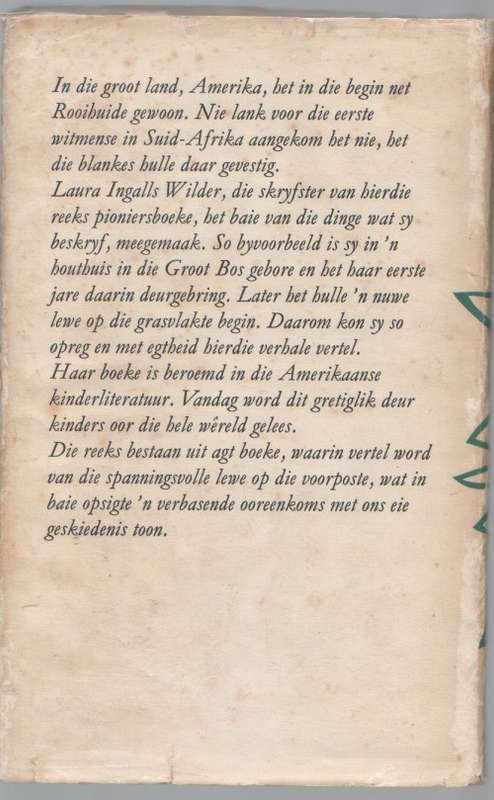 In die groot land, Amerika, het in die begin net
Rooihuide gewoon. Nie lank voor die eerste
witmense in Suid-Afrika aangekom het nie, het
die blankes hulle daar gevestig.
Laura Ingalls Wilder, die skryfster van hierdie
reeks pioniersboeke, het baie van die dinge wat sy
beskryf, meegemaak. So byvoorbeeld is sy in 'n
houthuis in die Groot Bos gebore en het haar eerste
jare daarin deurgebring. Later het hulle 'n nuwe
lewe op die grasvlakte begin. Daarom kon sy so
opreg en met egtheid hierdie verhale vertel.
Haar boeke is beroemd in die Amerikaanse
kinderliteratuur. Vandag word dit gretiglik deur
kinders oor die hele wêreld gelees.
Die reeks bestaan uit agt boeke, waarin vertel word
van die spanningsvolle lewe op die voorposte, wat in
baie opsigte 'n verbasende ooreenkoms met ons eie
geskiedenis toon.